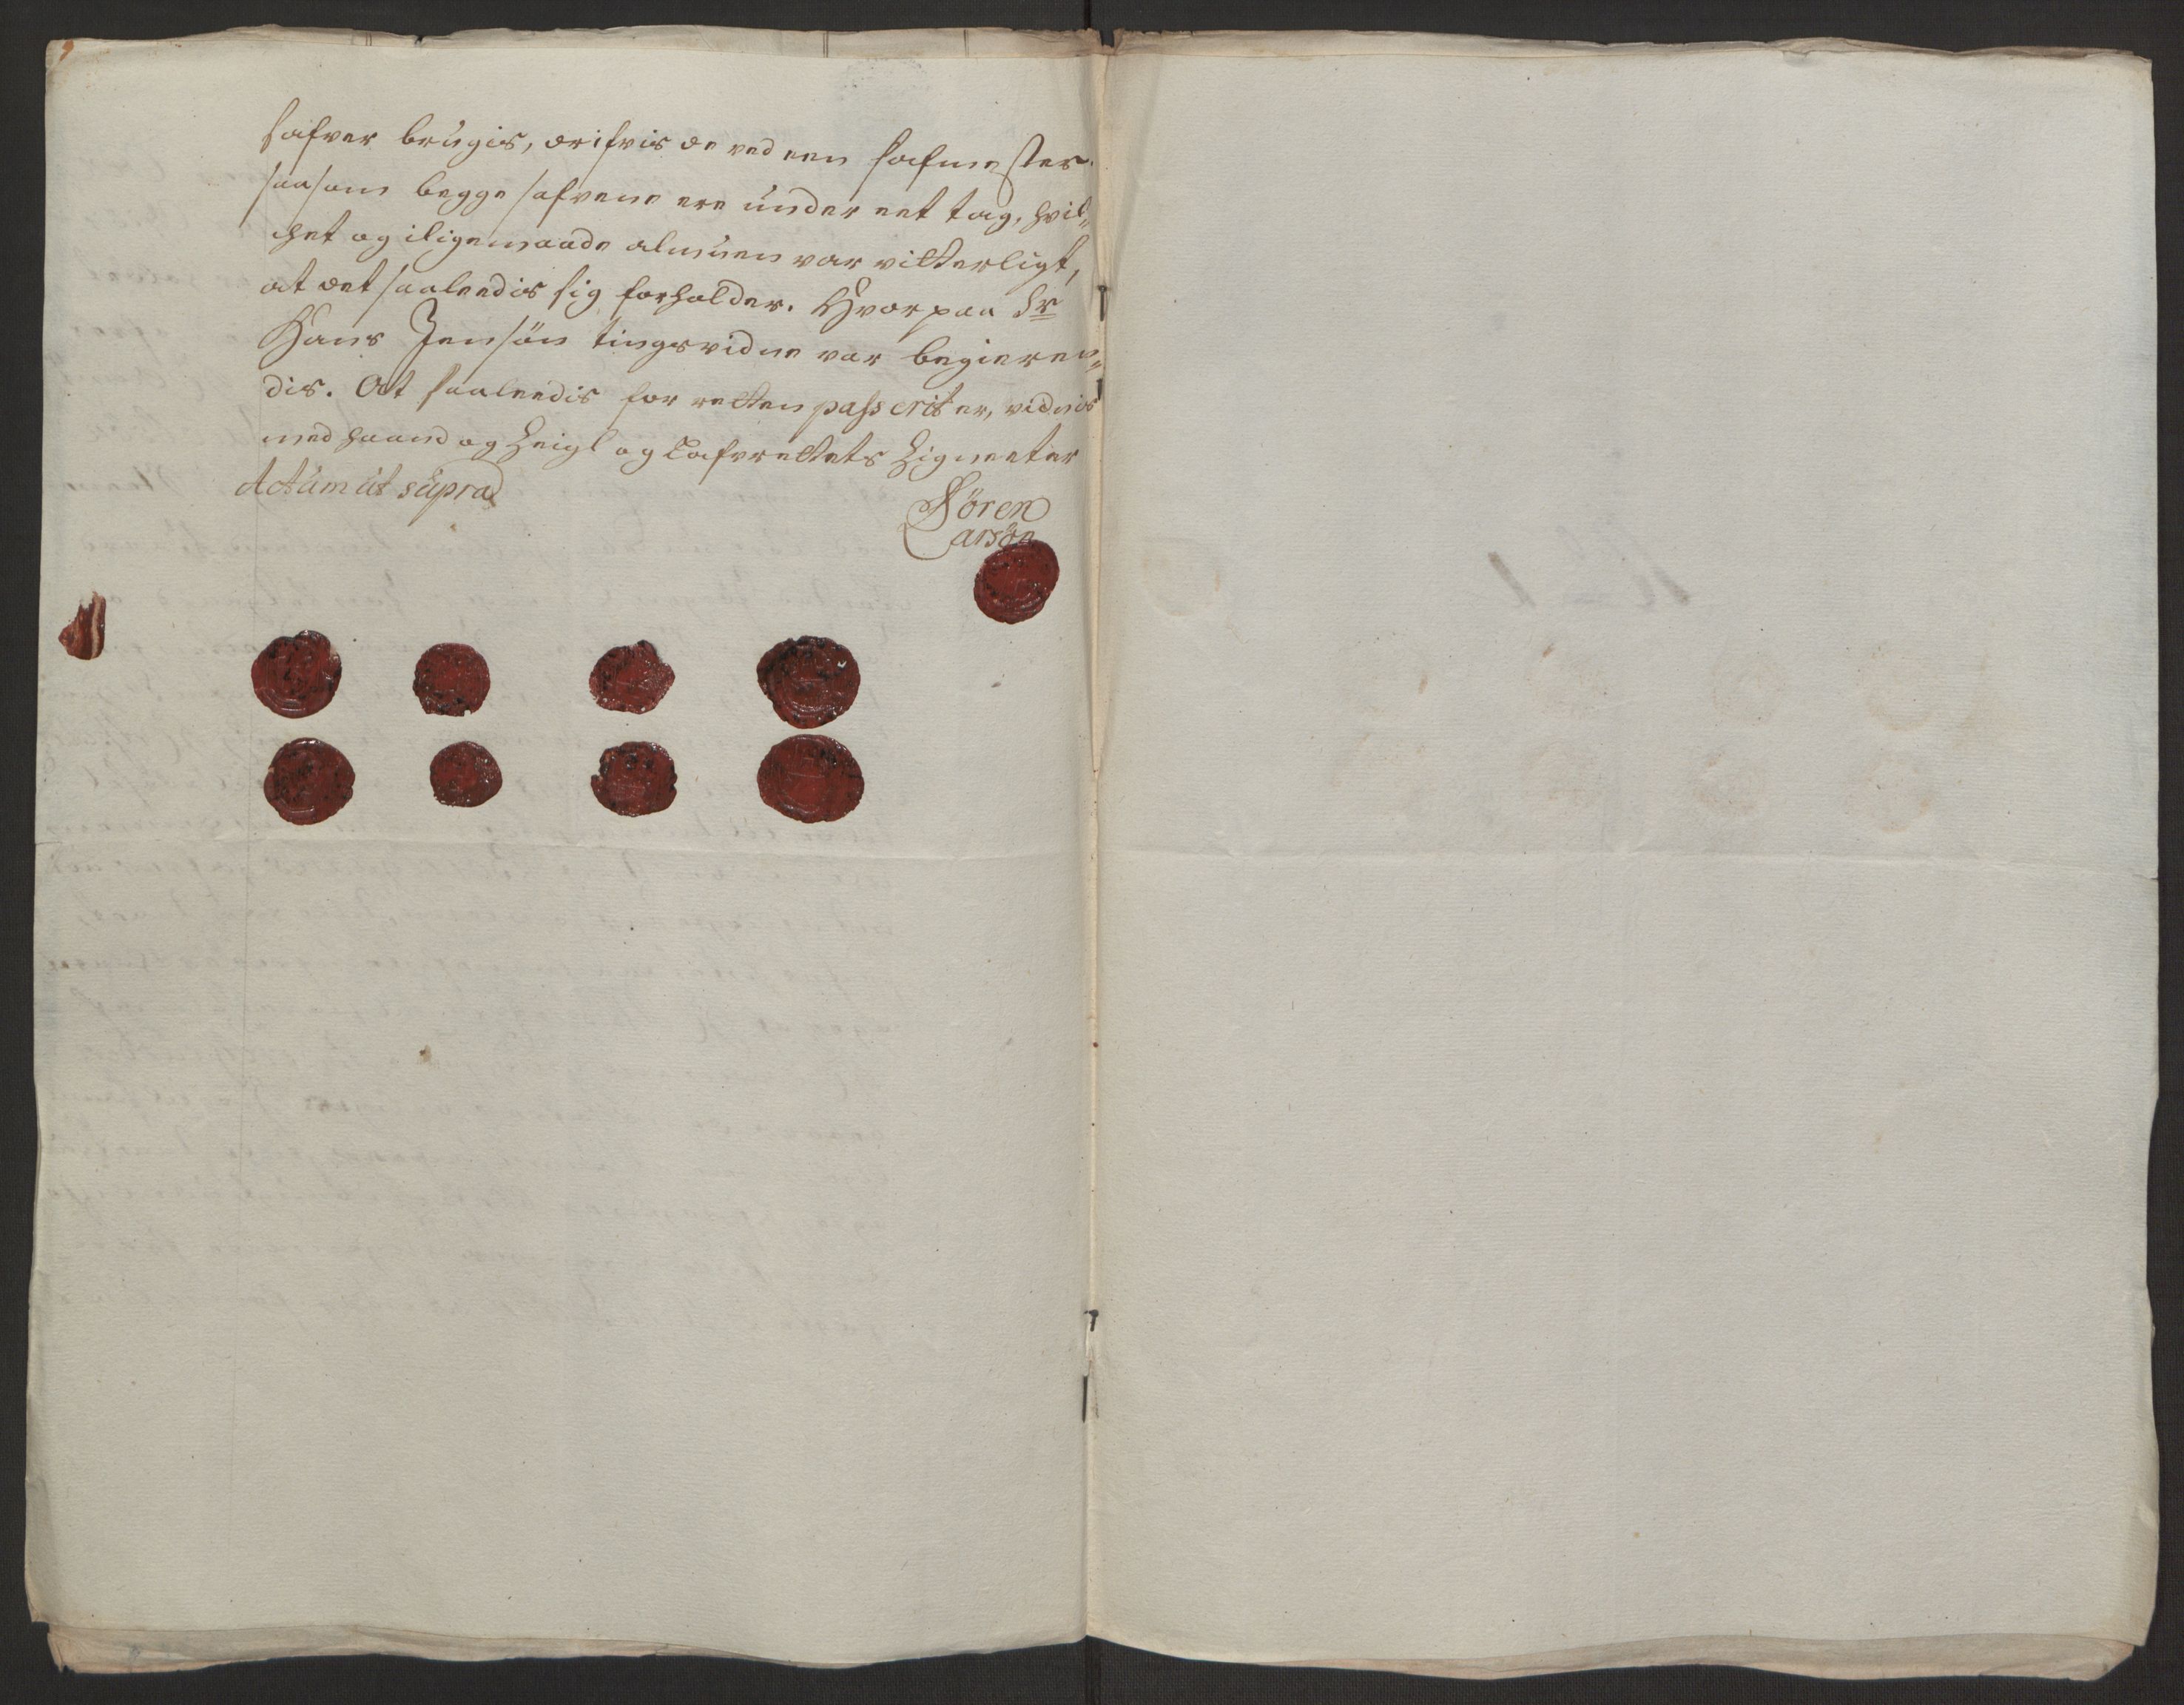 safver brugis, drifvis de ved een safmester
saasom begge safvene ere under eet tag, hvil„
chet og iligemaade almuen var vitterligt,
at det saaleedis sig forholder. Hvorpaa Sr
Hans Jensön tingsvidne var begieren„
dis. At saaleedis for retten passerit er, vidnis
med haand og Zeigl og Lafvrettets Zigneeter
Actum ut supra
Sören
Larsön